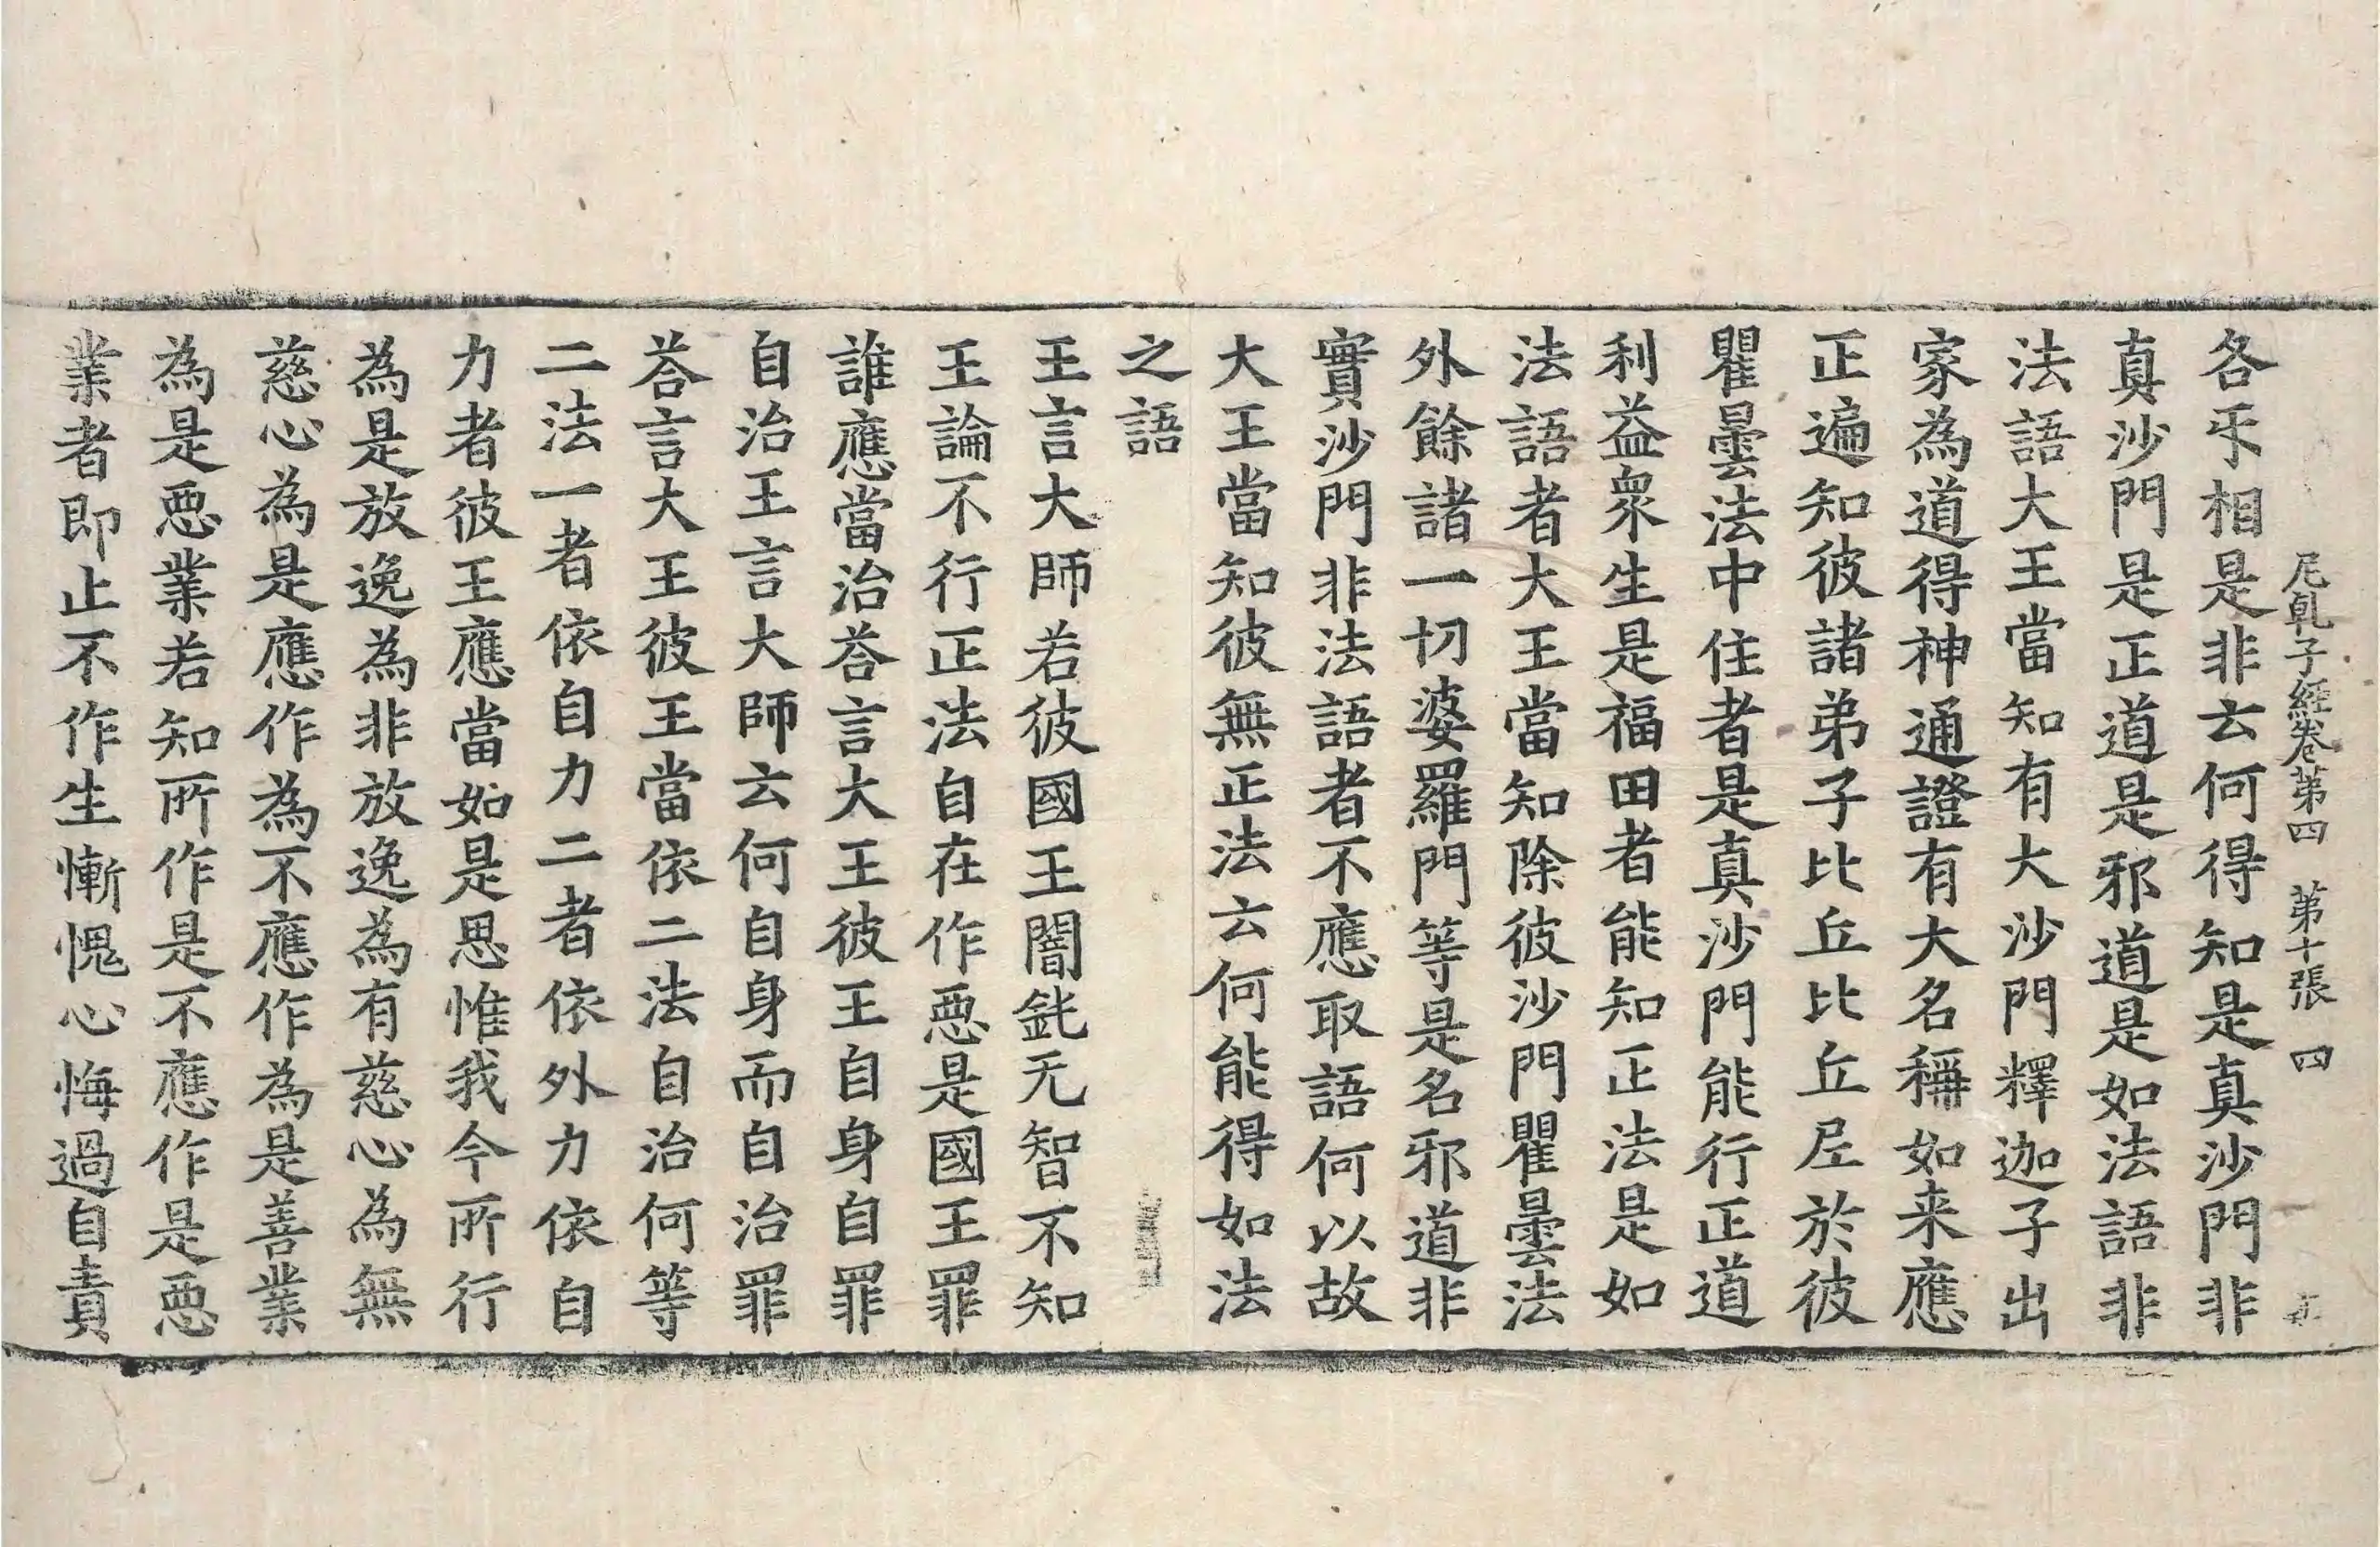 尼乹子經卷第四　第十張　四
各𭃂相是非云何得知是真沙門非
真沙門是正道是邪道是如法語非
法語大王當知有大沙門釋迦子出
家為道得神通證有大名稱如来應
正遍知彼諸弟子比丘比丘尼於彼
瞿曇法中住者是真沙門能行正道
利益衆生是福田者能知正法是如
法語者大王當知除彼沙門瞿曇法
外餘諸一切婆羅門等是名邪道非
實沙門非法語者不應取語何以故
大王當知彼無正法云何能得如法
之語
王言大師若彼國王闇鈍无智不知
王論不行正法自在作惡是國王罪
誰應當治荅言大王彼王自身自罪
自治王言大師云何自身而自治罪
荅言大王彼王當依二法自治何等
二法一者依自力二者依外力依自
力者彼王應當如是思惟我今所行
為是放逸為非放逸為有慈心為無
慈心為是應作為不應作為是善業
為是惡業若知所作是不應作是惡
業者即止不作生慚愧心悔過自責